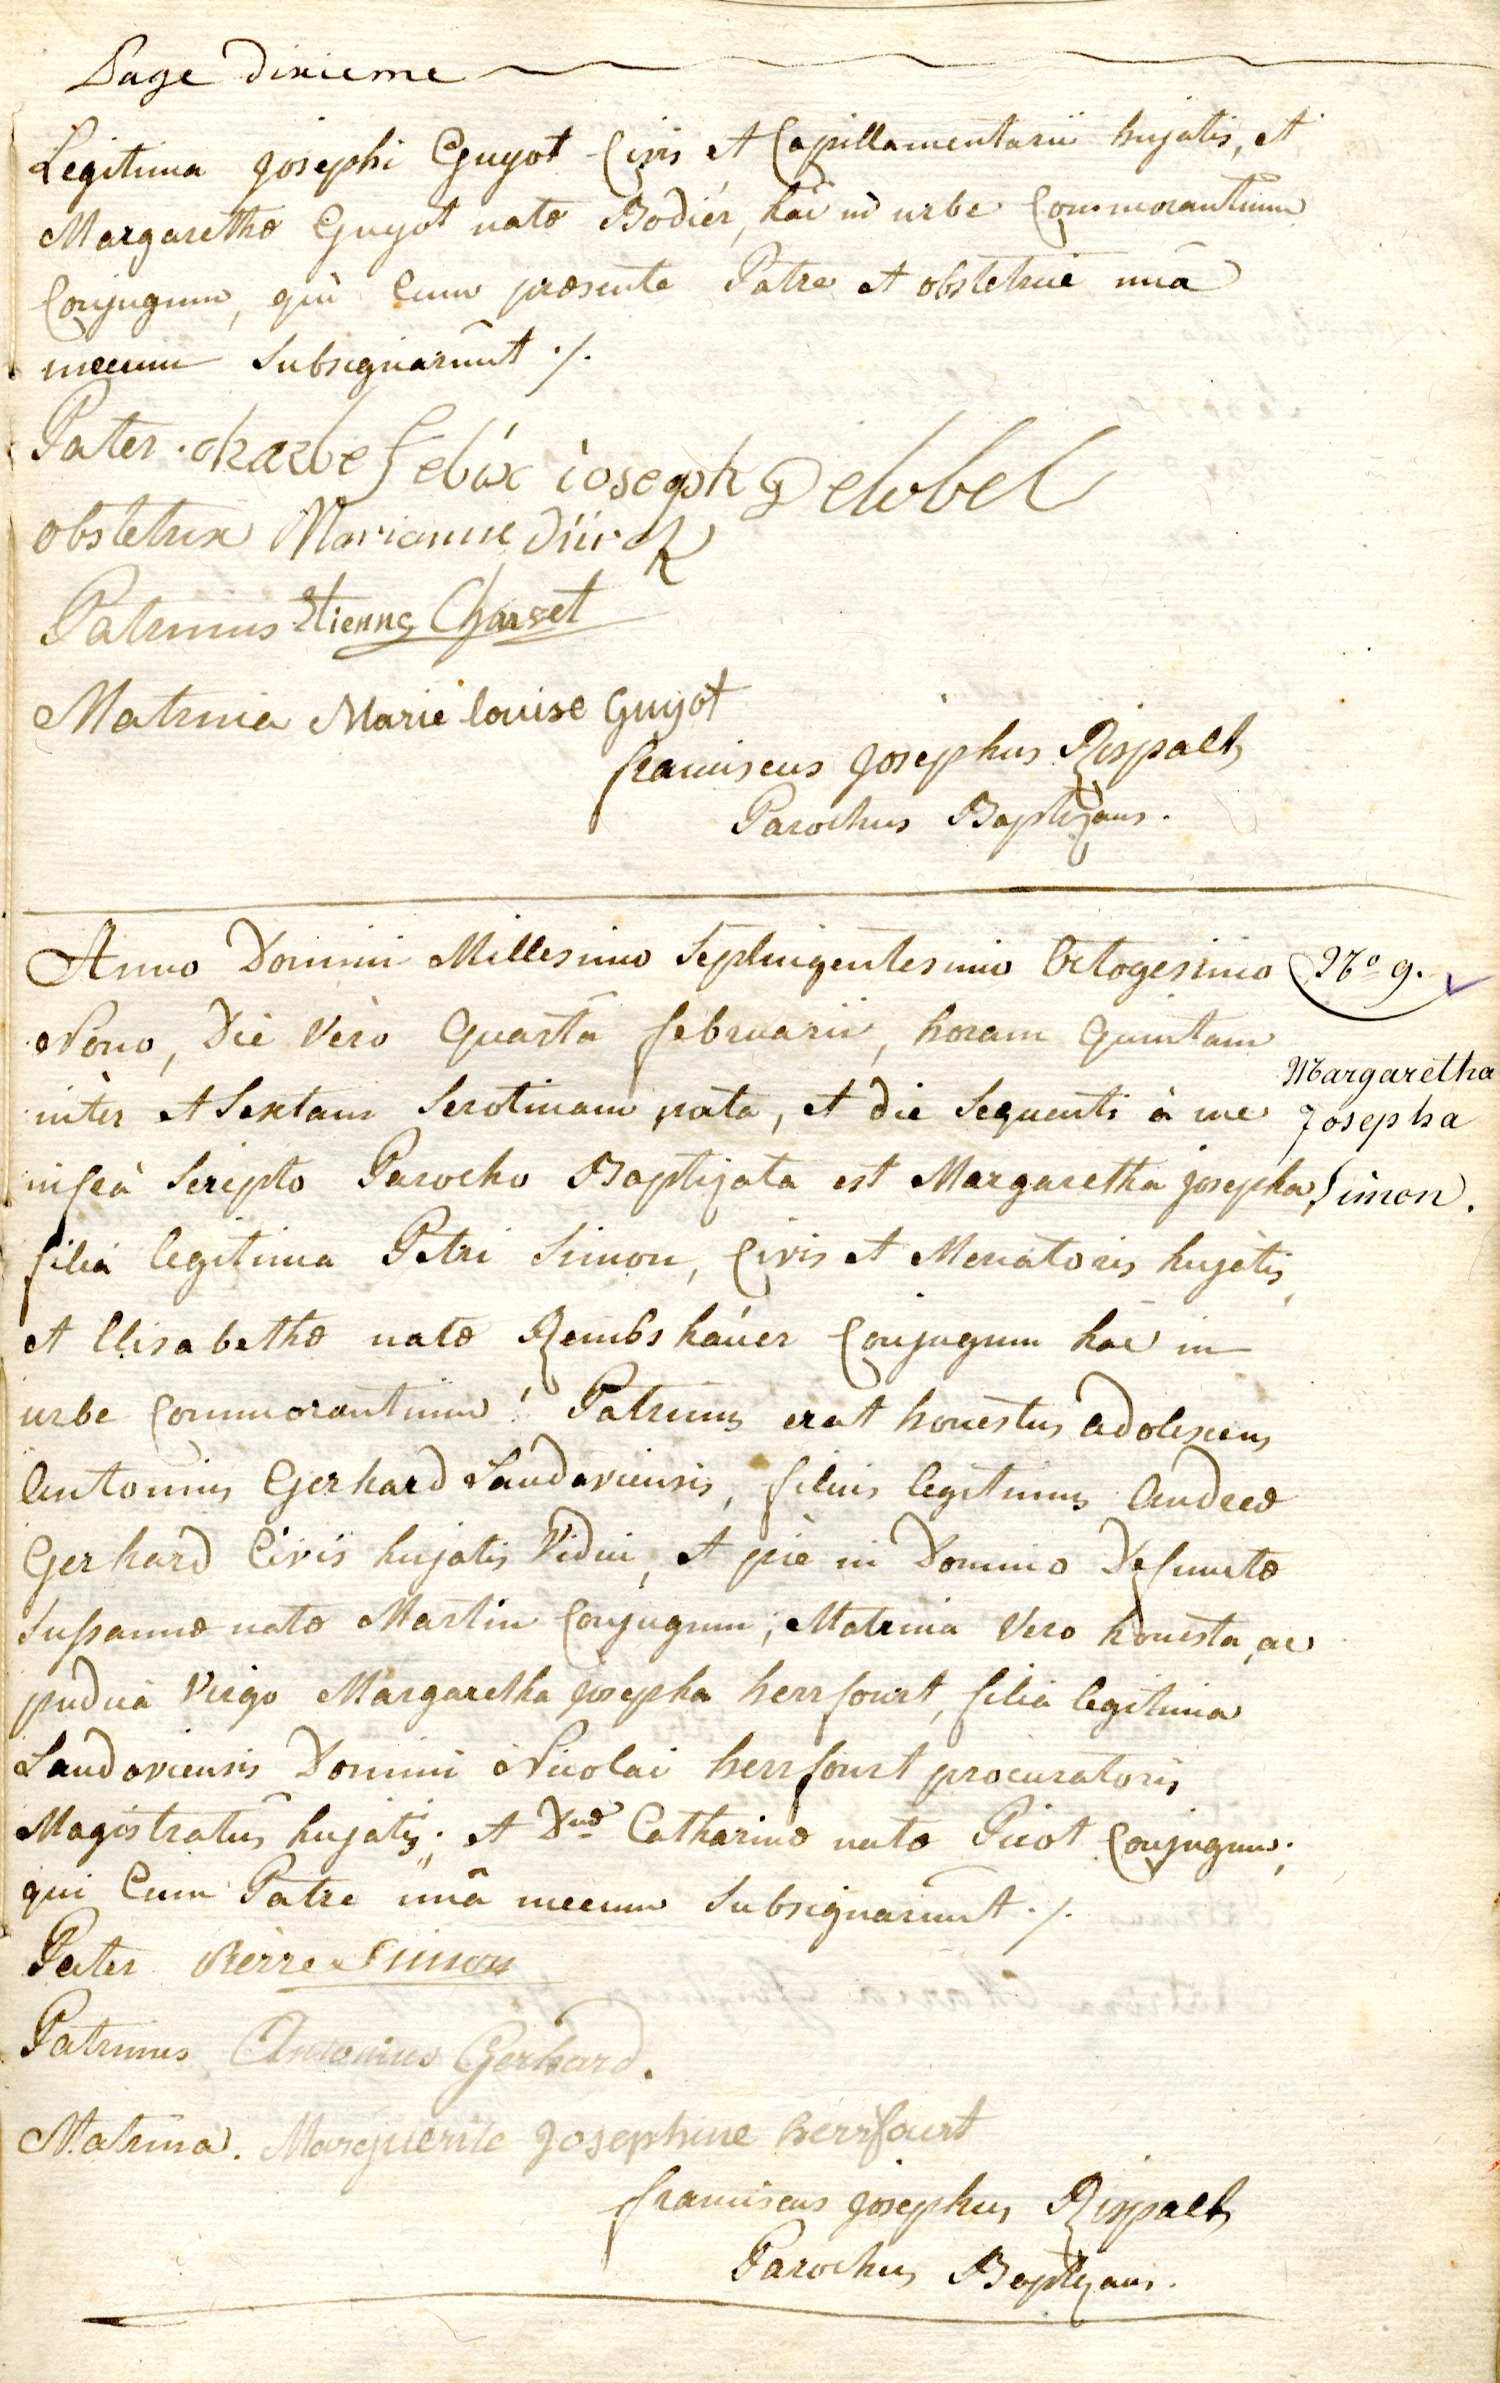 Page dixieme
Legitima Josephi Guyot Civis et Capillamentarii hujatis, et
Margarethæ Guyot natæ Bodiér, hâc in urbe Commorantium
Conjugum, qui Cum præsente Patre et obstetrice unâ
mecum Subsignarunt ./.
Pater felix ioseph Delobel
obstetrix Marianne Dürck
Patrinus Etienne Charset
Matrina Marie louise Guyot
franciscus Josephus Rispalt
Parochus Baptizans.
Anno Domini Millesimo Septuigentesimo Octogesimo
Nono, Die Vero Quartâ februarii, horam Quintam
inter et Sextam Serotinam nata, et die Sequenti à me
infrà Scripto Parocho Baptizata est Margaretha josepha
filia legitima Petri Simon, Civis et Mercatoris hujatis,
et Elisabethæ natæ Rembshäuer Conjugum hâc in
urbe Commorantium! Patrinus erat honestus adolescens
Antonius Gerhard Landaviensis, filius legitimus Andreæ
Gerhard Civis hujatis Vidui, et piè in Domino Defunctæ
Susannæ natæ Martin Conjugum; Matrina Vero honesta, ac
pudica Virgo Margaretha Josepha herrfourt, filia legitima
Landaviensis Domini Nicolai herrfourt procuratoris
Magistratûs hujatis; et Dnæ Catharinæ natæ Picot Conjugum;
qui Cum Patre unâ mecum Subsignarunt ./.
Pater Pierre Simon
Patrinus Antonius Gerhard.
Matrina. Marguerite Josephine herrfourt
franciscus josephus Rispalt
Parochus Baptizans.
No 9.
Margaretha
Josepha
Simon.